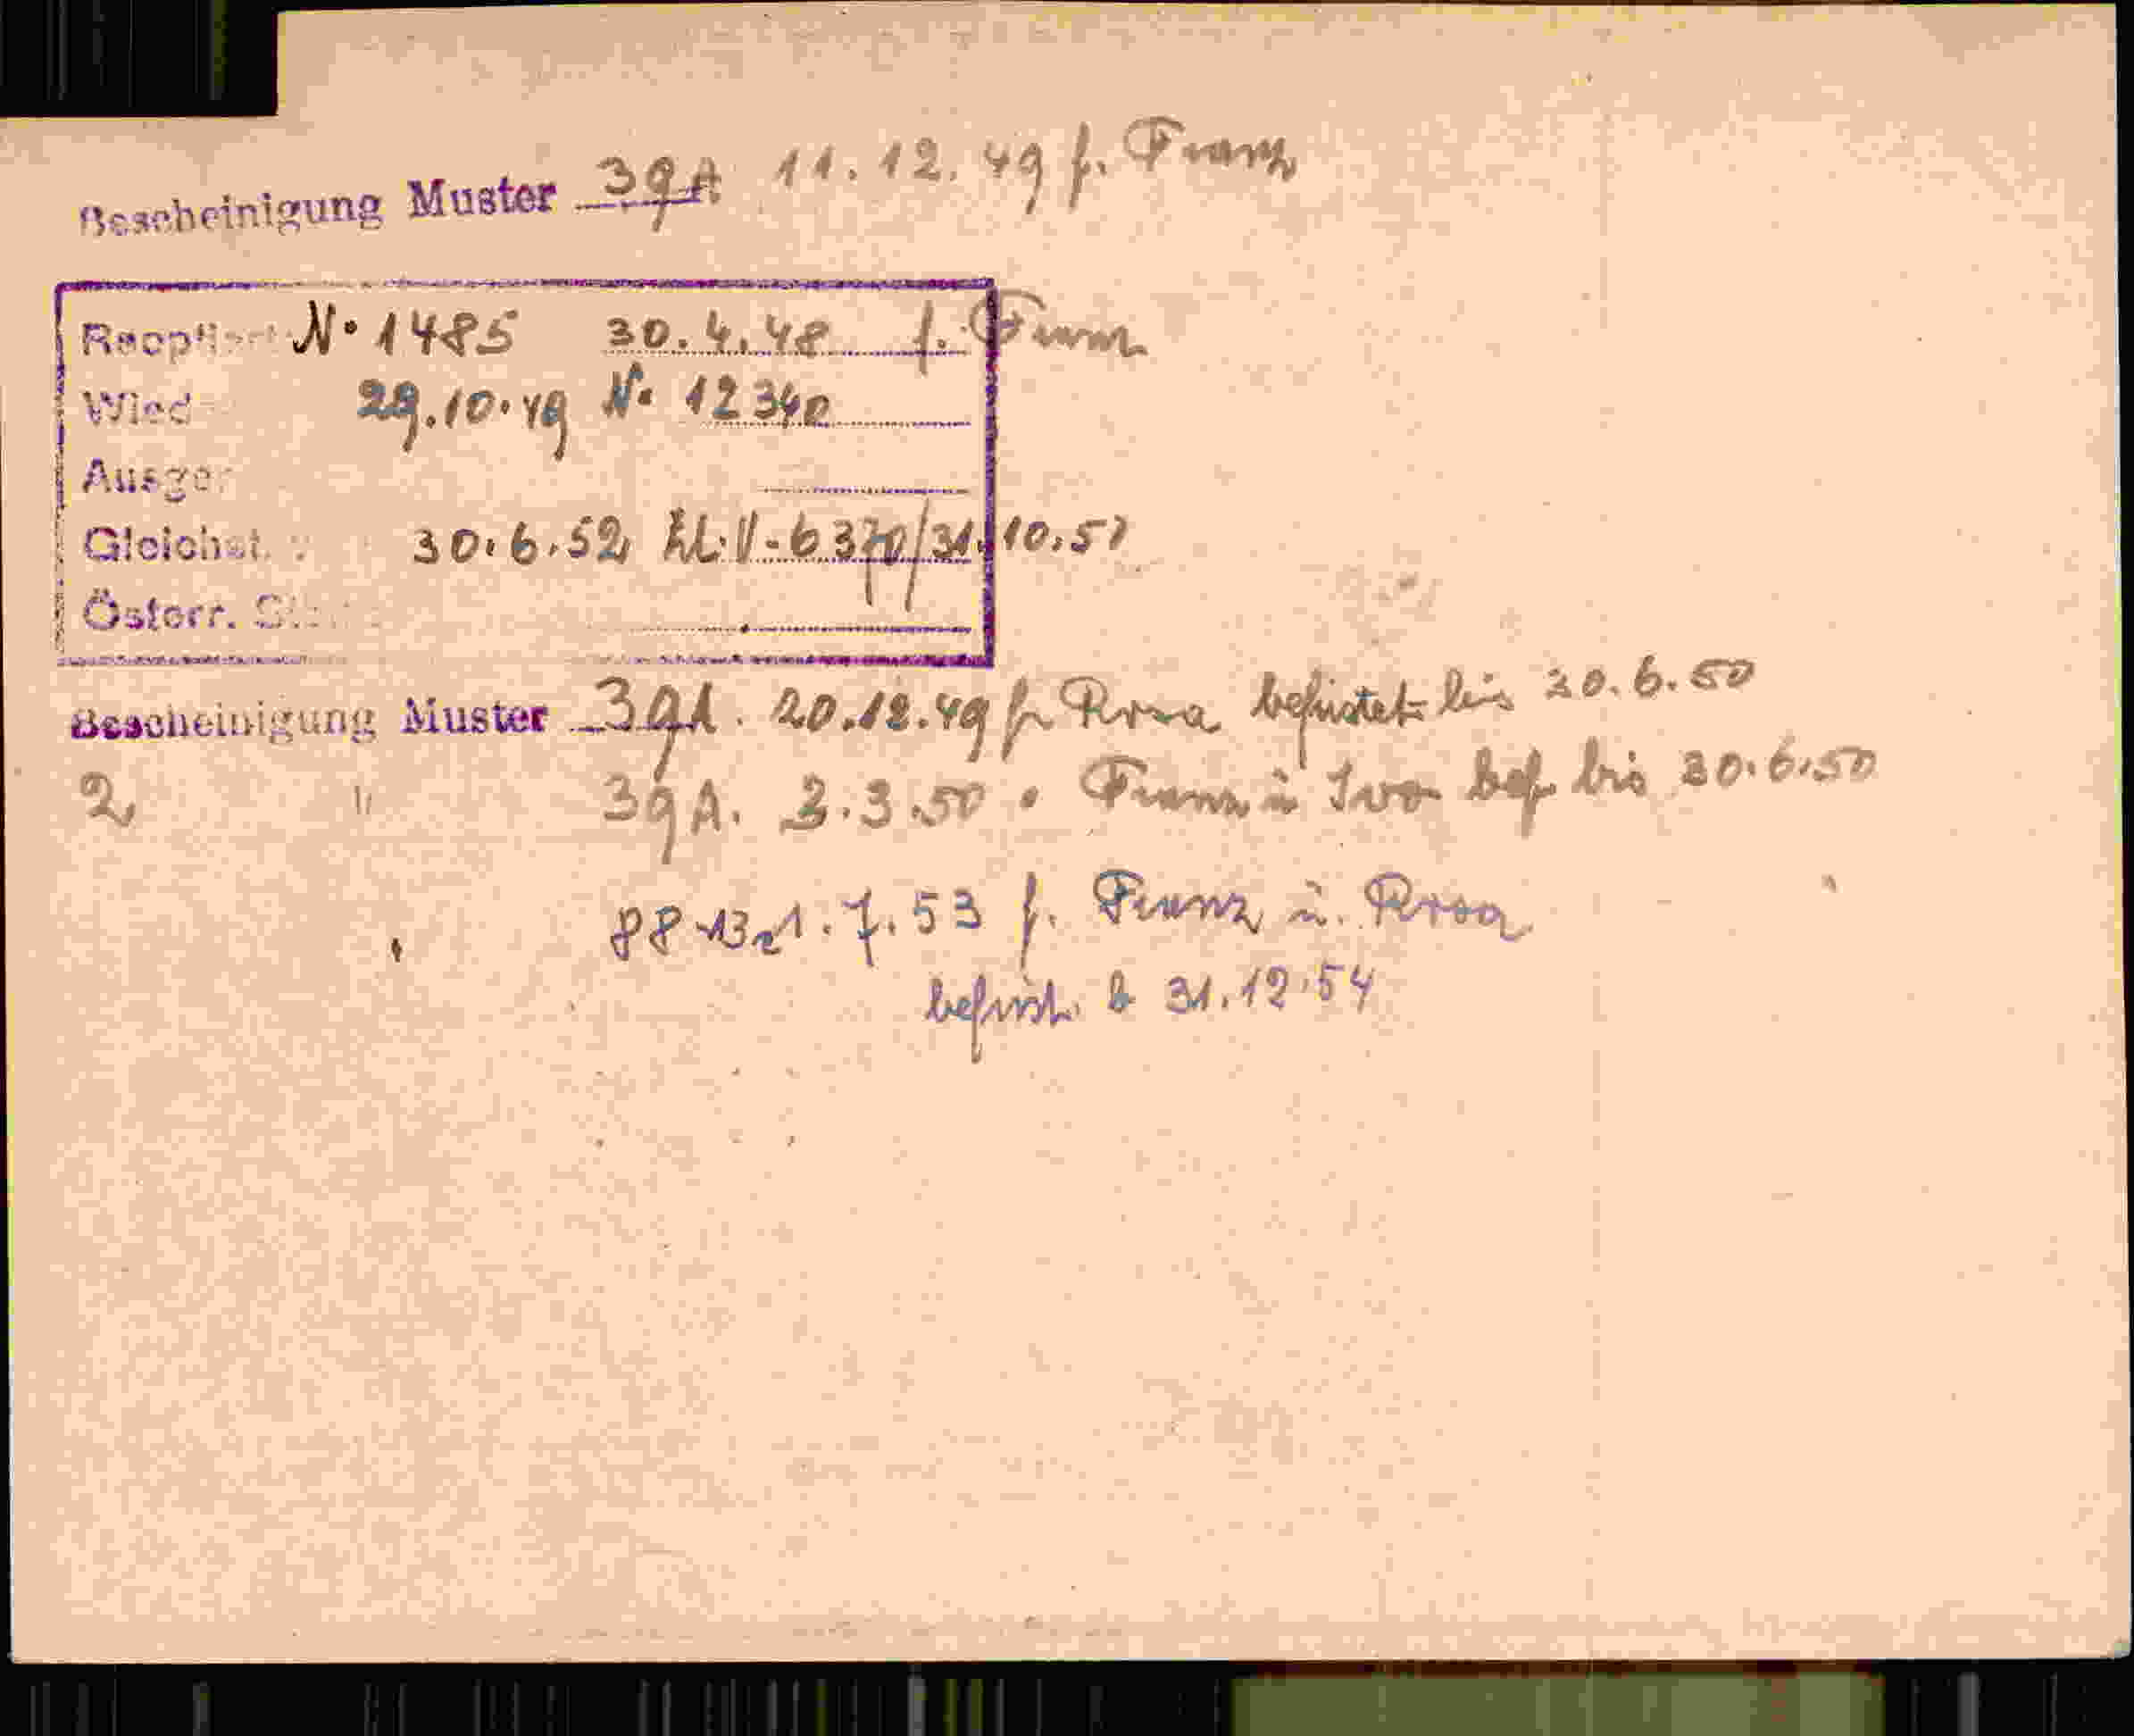 Bescheinigung Muster 39A 11.12.49 f. Franz
N° 1485 30.4.48 f. Franz
Wied 29.10.49 N° 12340
Ausge
Gleichst. 30.6.52 Zl. V-6370/31.10.51
Österr. St
Bescheinigung Muster 39A. 20.12.49 f. Rosa befristet bis 30.6.50
2 " 39A. 3.3.50 " Franz u Ivo bef. bis 30.6.50
1.7.53 f. Franz u. Rosa
befrist. b 31.12.54